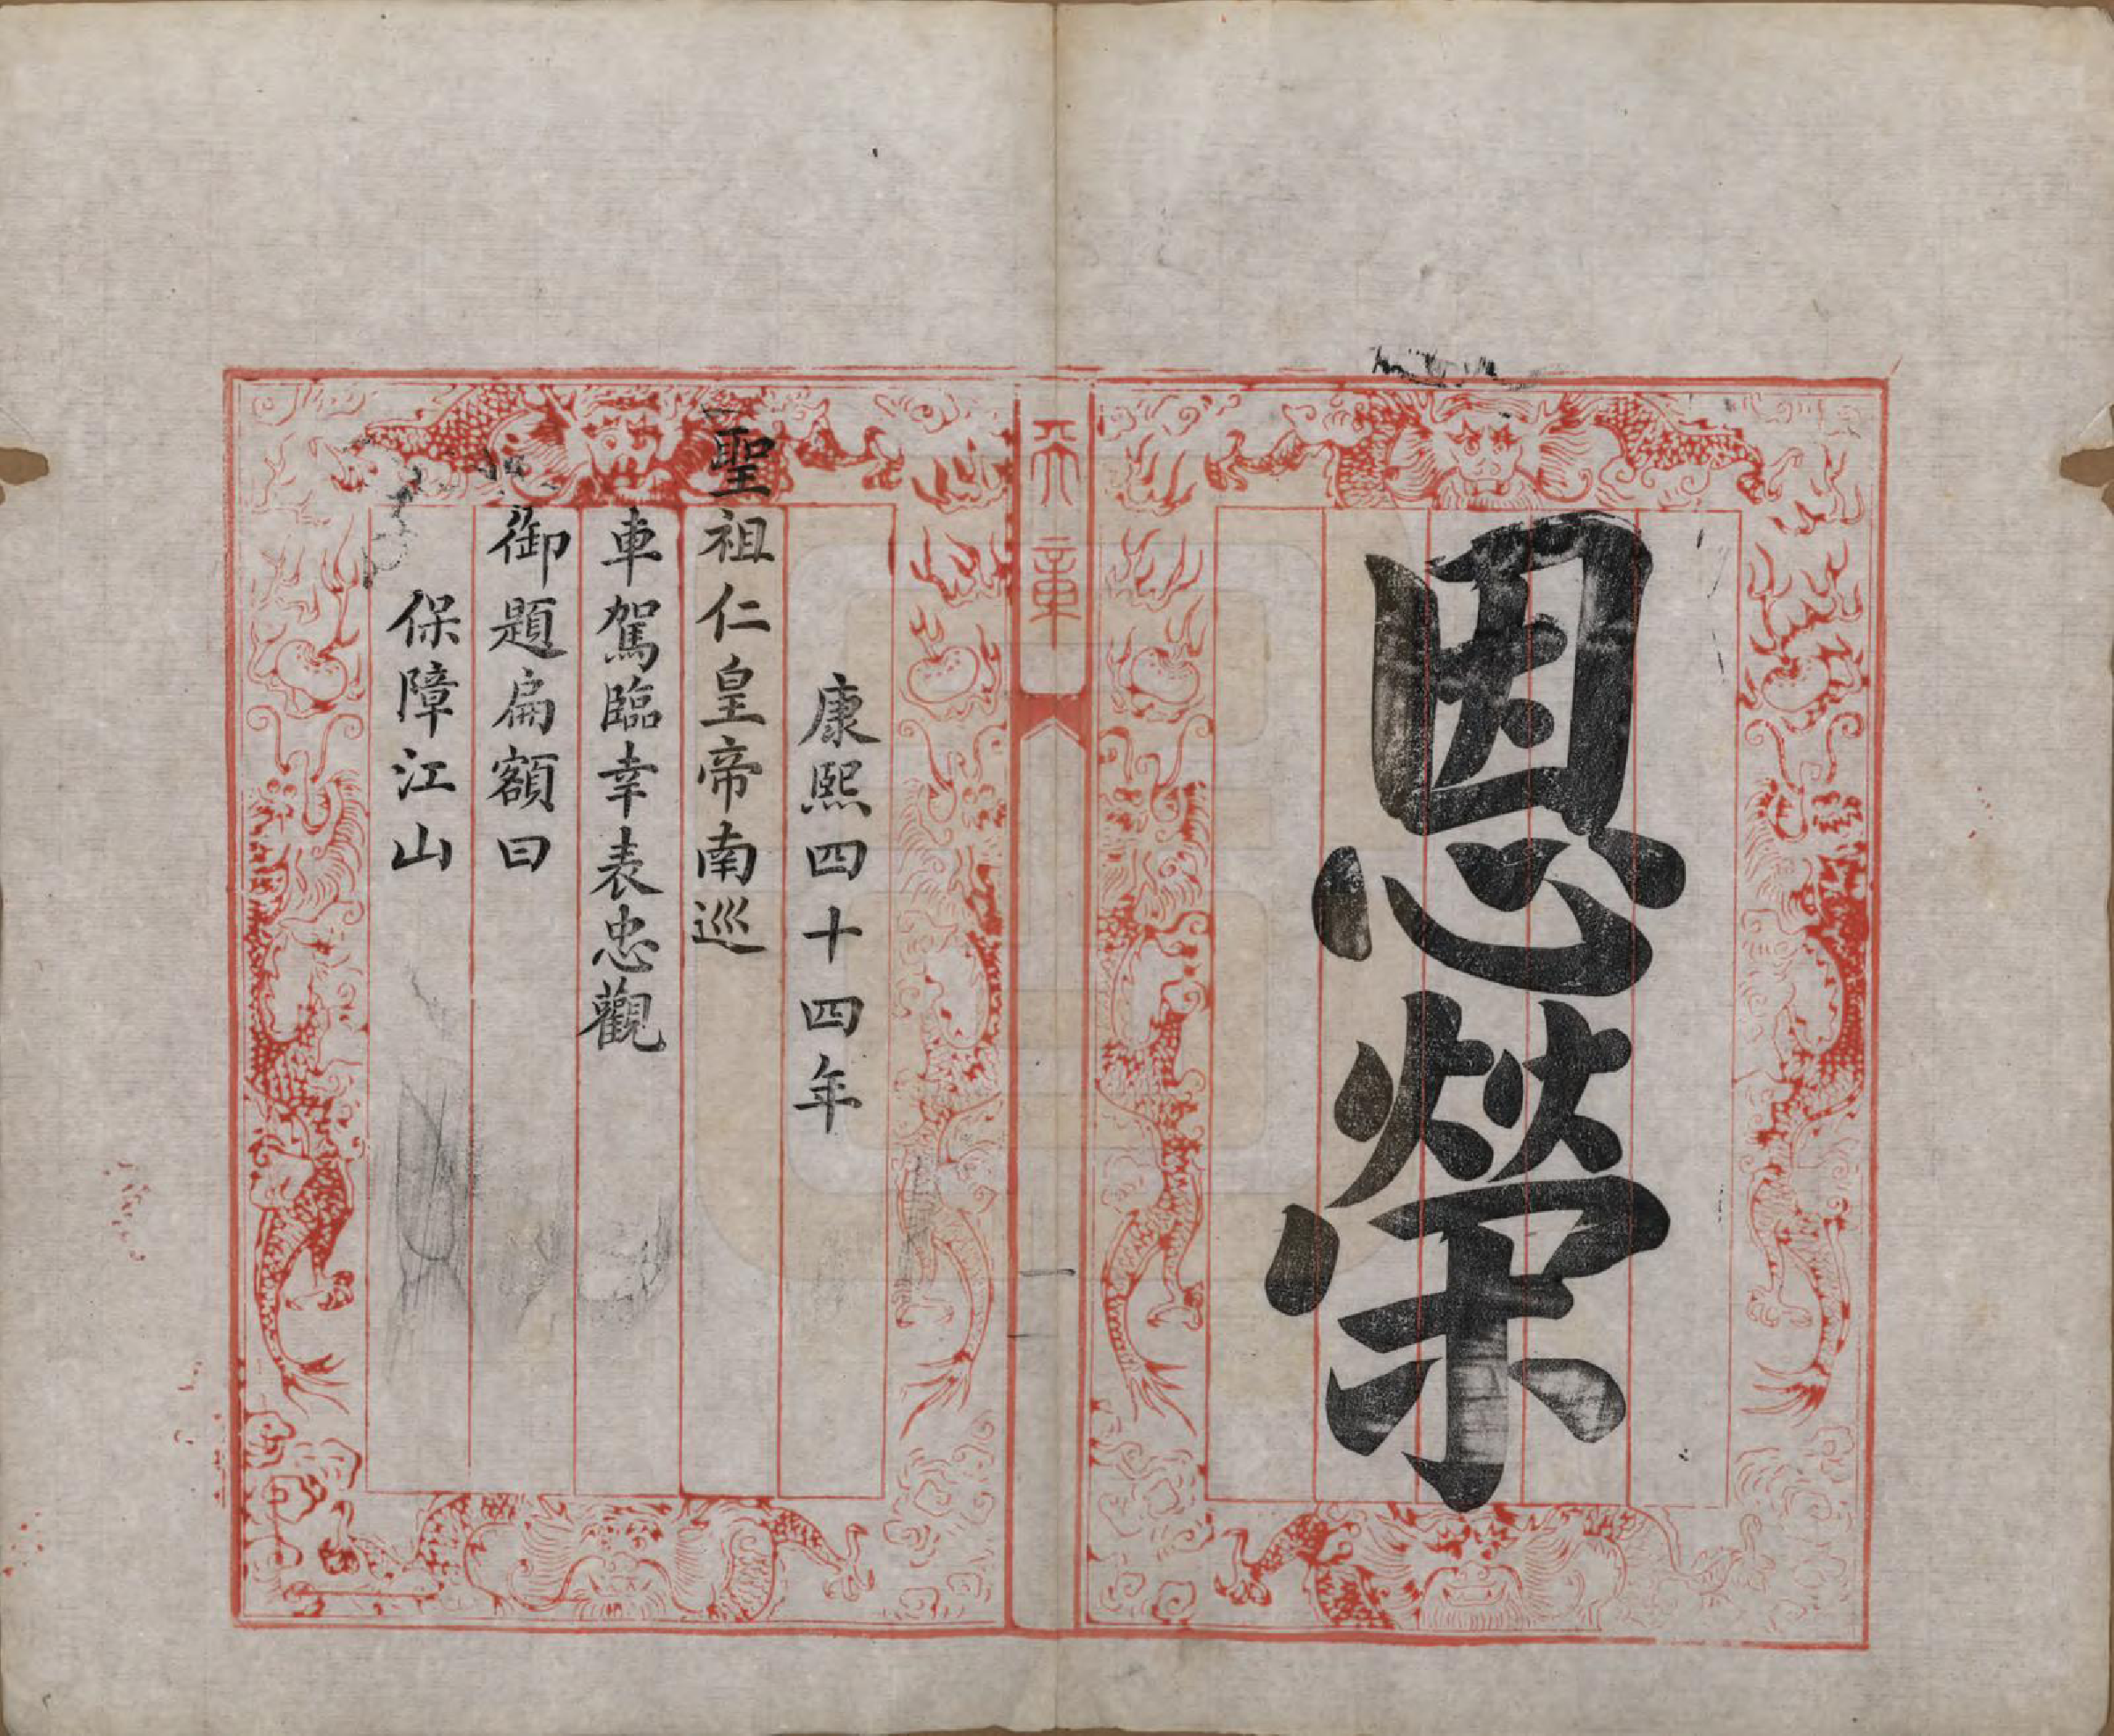 恩榮
天章
一
康熙四十四年
聖祖仁皇帝南巡
車駕臨幸表忠觀
御題扁額曰
保障江山